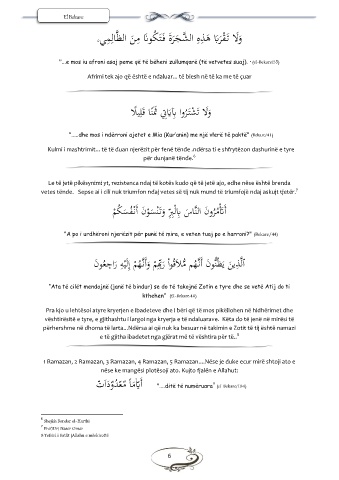 El Bekare
وَلَا تَقْرَبَا هَذِهِ الشَّجَرَةَ فَتَكُونَا مِنَ الظَّالِمِي
"...e mos iu afroni asaj peme që të bëheni zullumqarë (të vetvetes suaj).
Afrimi tek ajo që është e ndaluar... të tiesh në të ka me të çuar
وَلَا تَشْتَرُوا بِآيَاتِي ثَمَنًا قَلِيلًا
"....dhe mos i ndërroni ajetet e Mia (Kur'anin) me një vlerë të paktë" (Bekare/41)
Kulmi i mashtrimit... të të duan njerëzit për fenë tënde .ndërsa ti e shfrytëzon dashurinë e tyre
për dunjanë tënde.6
Le të jetë pikësynimi yt, rezistenca ndaj të kotës kudo që të jetë ajo, edhe nëse është brenda
vetes tënde. Sepse ai i cili nuk triumfon ndaj vetes së tij nuk mund të triumfojë ndaj askujt tjetër.7
أَتَأْمُرُونَ النَّاسَ بِالْبِرِّ وَتَنْسَوْنَ أَنْفُسَكُمْ
"A po i urdhëroni njerëzit për punë të mira, e veten tuaj po e harroni?" (Bekare/44)
الَّذِينَ يَظُنُّونَ أَنَّهُم مُّلَاقُو رَبِّهِمْ وَأَنَّهُمْ إِلَيْهِ رَاجِعُونَ
"Ata të cilët mendojnë (janë të bindur) se do të takojnë Zotin e tyre dhe se vetë Atij do ti
kthehen" (El-Bekare 46)
Pra kjo u lehtësoi atyre kryerjen e ibadeteve dhe i bëri që të mos pikëllohen në hidhërimet dhe
vështirësitë e tyre, e gjithashtu i largoi nga kryerja e të ndaluarave. Këta do të jenë në mirësi të
përhershme në dhoma të larta...Ndërsa ai që nuk ka besuar në takimin e Zotit të tij është namazi
e të gjitha ibadetet nga gjërat më të vështira për të..8
1 Ramazan, 2 Ramazan, 3 Ramazan, 4 Ramazan, 5 Ramazan....Nëse je duke ecur mirë shtoji ato e
nëse ke mangësi plotësoji ato. Kujto fjalën e Allahut:
أَيَّامًا مَّعْدُودَاتٍ "...ditë të numëruara"
6